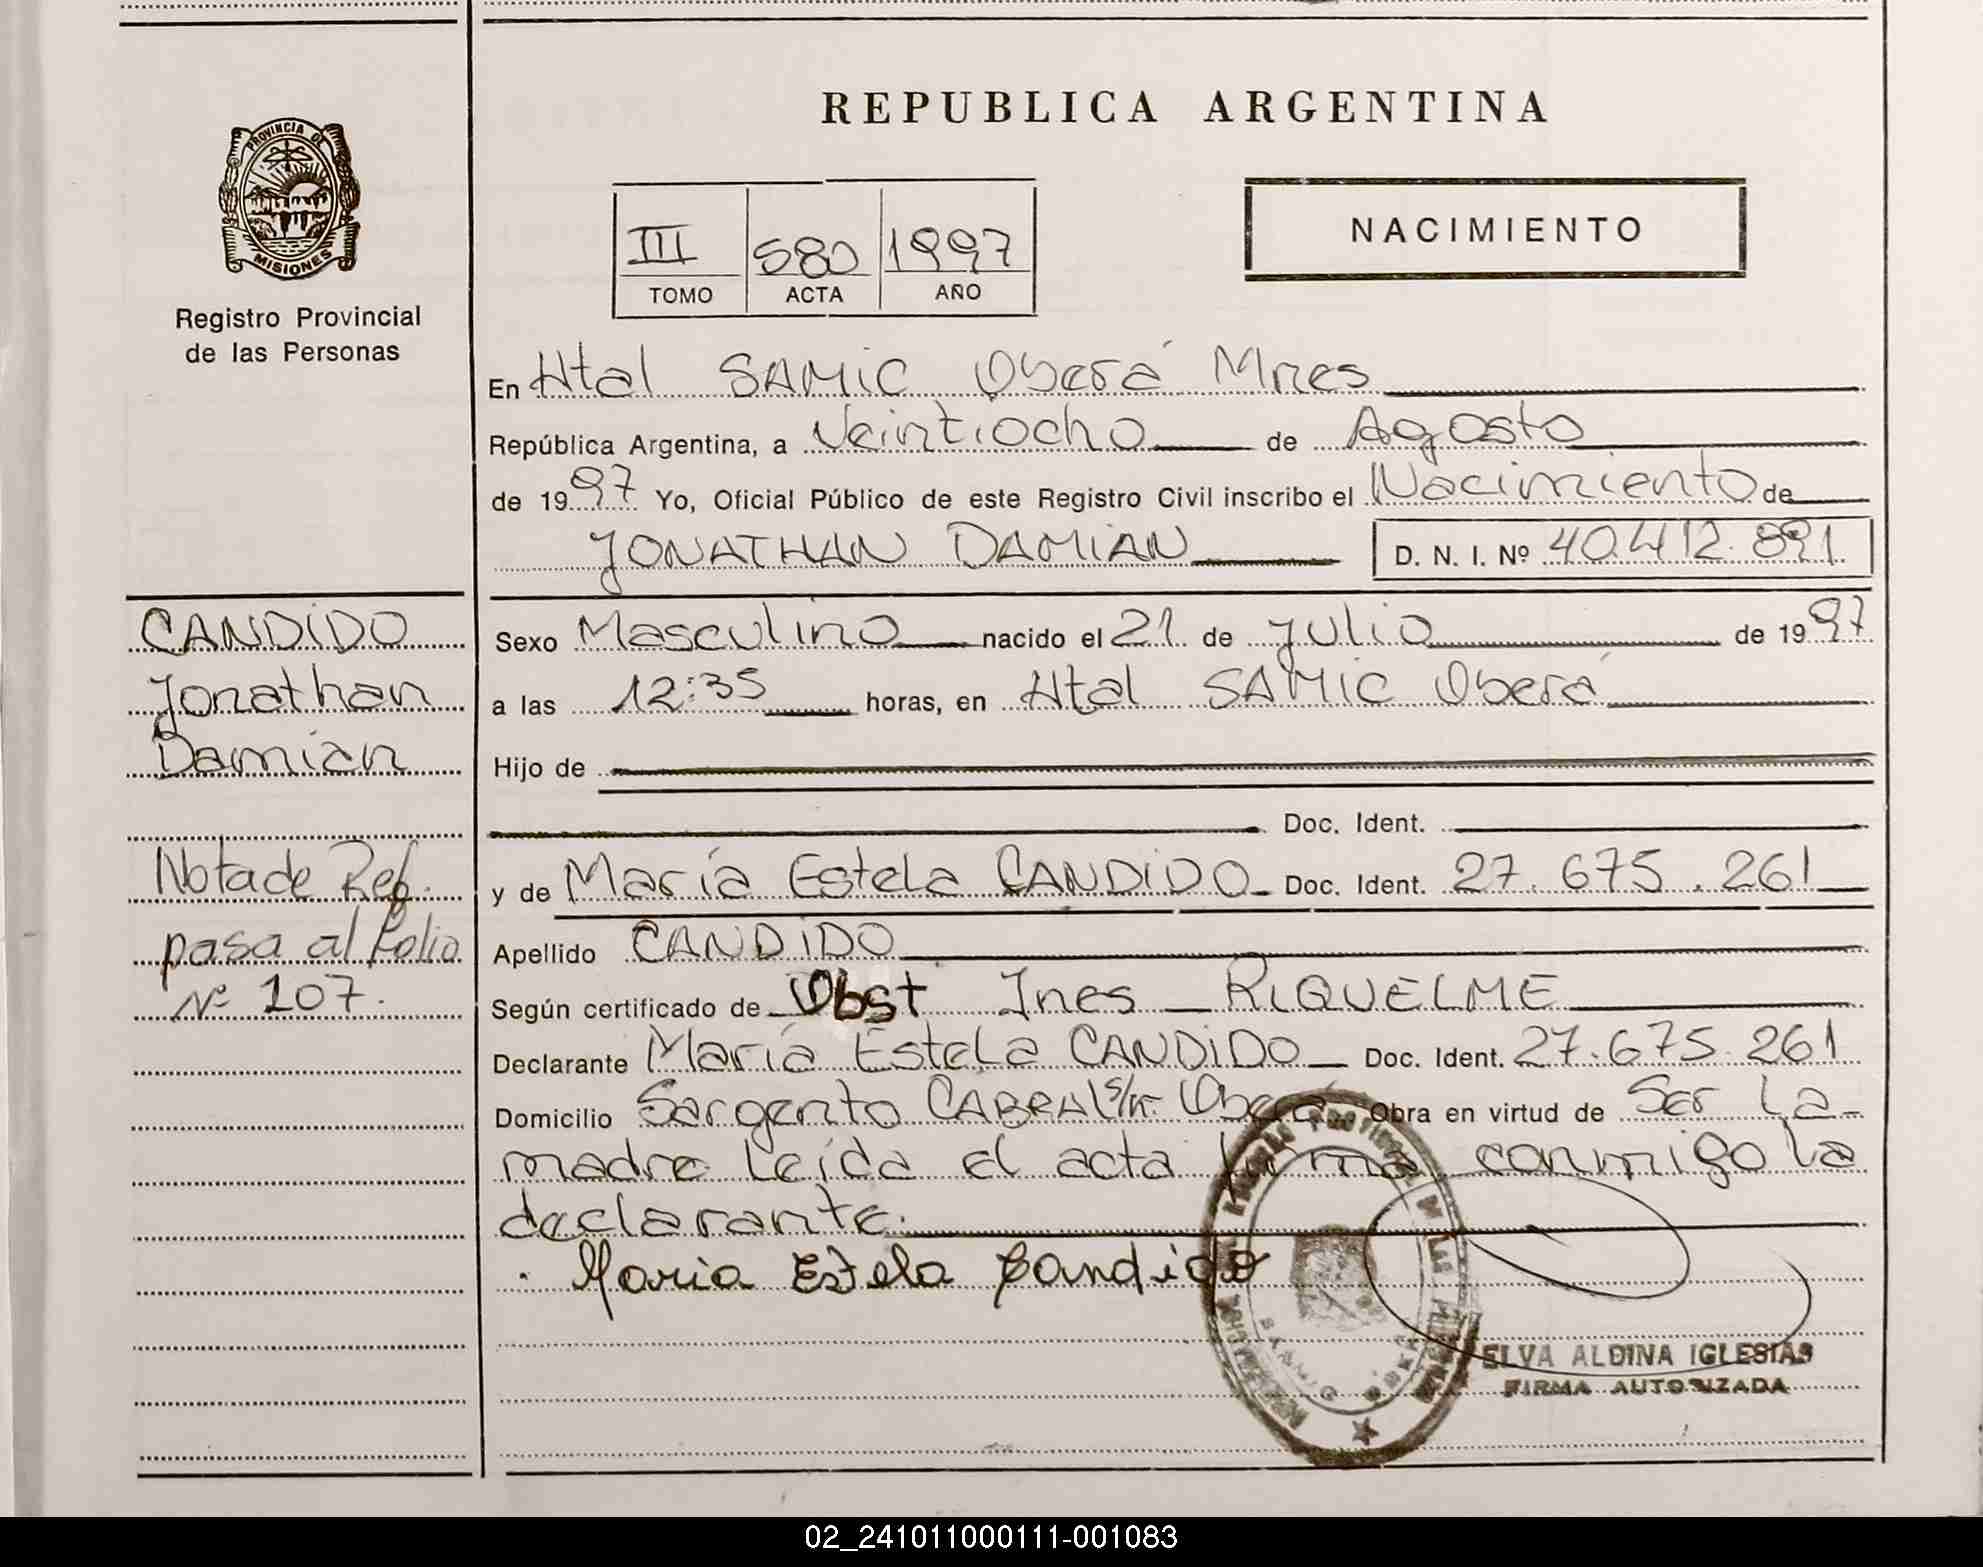 REPUBLICA ARGENTINA
PROVINCIA DE
MISIONES
Registro Provincial
de las Personas
III 580 1997
TOMO ACTA AÑO
NACIMIENTO
En Htal SAMIC Oberá Mnes
República Argentina, a Veintiocho de Agosto
de 1997 Yo, Oficial Público de este Registro Civil inscribo el Nacimiento de
JONATHAN DAMIAN D. N. I. Nº 40.412.891
CANDIDO
Jonathan
Damian
Nota de Ref.
pasa al folio
Nº 107.
Sexo Masculino nacido el 21 de Julio de 1997
a las 12:35 horas, en Htal SAMIC Oberá
Hijo de
Doc. Ident.
y de María Estela CANDIDO Doc. Ident. 27.675.261
Apellido CANDIDO
Según certificado de Obst Ines RIQUELME
Declarante María Estela CANDIDO Doc. Ident. 27.675.261
Domicilio Sargento CABRAL s/n. Oberá Obra en virtud de Ser La
madre Leída el acta firma conmigo la
declarante.
Maria Estela Candido
ELVA ALDINA IGLESIAS
FIRMA AUTORIZADA
02_241011000111-001083